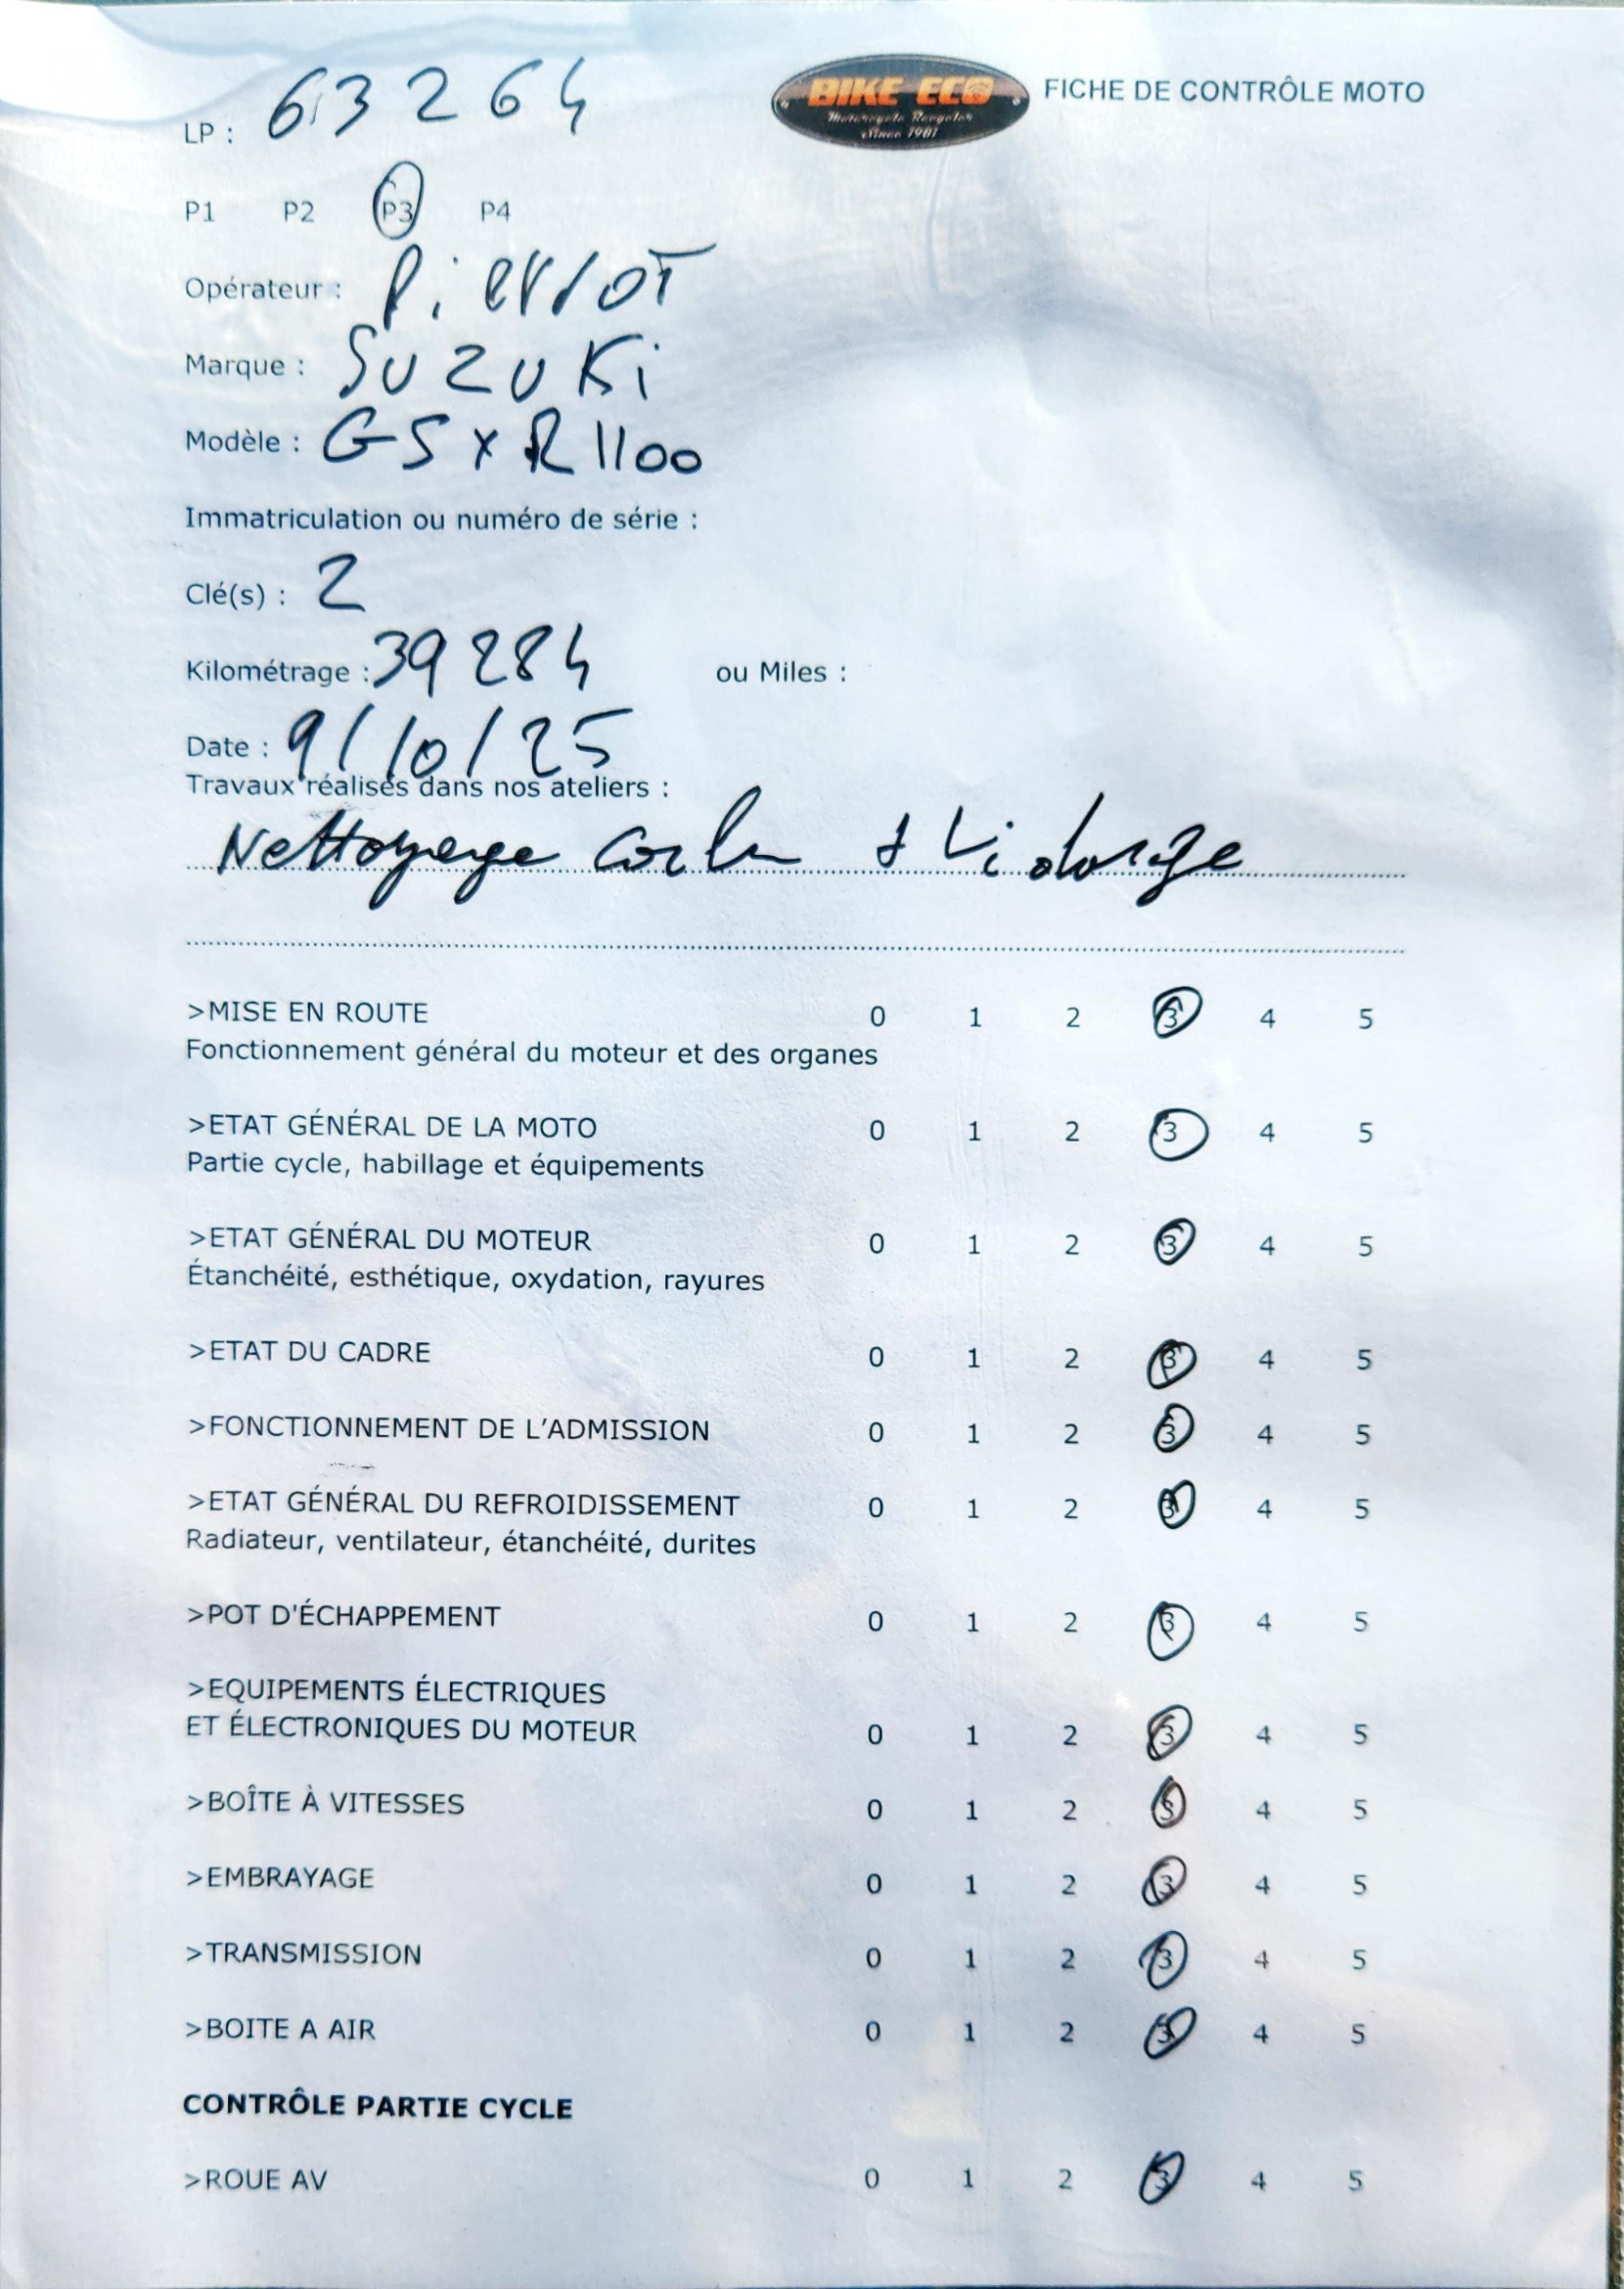 LP : 63264
BIKE ECO
Motorcycle Recycler
Since 1981
FICHE DE CONTRÔLE MOTO
P1 P2 P3 P4
Opérateur : Pierrot
Marque : SUZUKi
Modèle : GSXR 1100
Immatriculation ou numéro de série :
Clé(s) : 2
Kilométrage : 39284 ou Miles :
Date : 9/10/25
Travaux réalisés dans nos ateliers :
Nettoyage Carbu + Vidange
>MISE EN ROUTE 0 1 2 3 4 5
Fonctionnement général du moteur et des organes
>ETAT GÉNÉRAL DE LA MOTO 0 1 2 3 4 5
Partie cycle, habillage et équipements
>ETAT GÉNÉRAL DU MOTEUR 0 1 2 3 4 5
Étanchéité, esthétique, oxydation, rayures
>ETAT DU CADRE 0 1 2 3 4 5
>FONCTIONNEMENT DE L'ADMISSION 0 1 2 3 4 5
>ETAT GÉNÉRAL DU REFROIDISSEMENT 0 1 2 3 4 5
Radiateur, ventilateur, étanchéité, durites
>POT D'ÉCHAPPEMENT 0 1 2 3 4 5
>EQUIPEMENTS ÉLECTRIQUES
ET ÉLECTRONIQUES DU MOTEUR 0 1 2 3 4 5
>BOÎTE À VITESSES 0 1 2 3 4 5
>EMBRAYAGE 0 1 2 3 4 5
>TRANSMISSION 0 1 2 3 4 5
>BOITE A AIR 0 1 2 3 4 5
CONTRÔLE PARTIE CYCLE
>ROUE AV 0 1 2 3 4 5